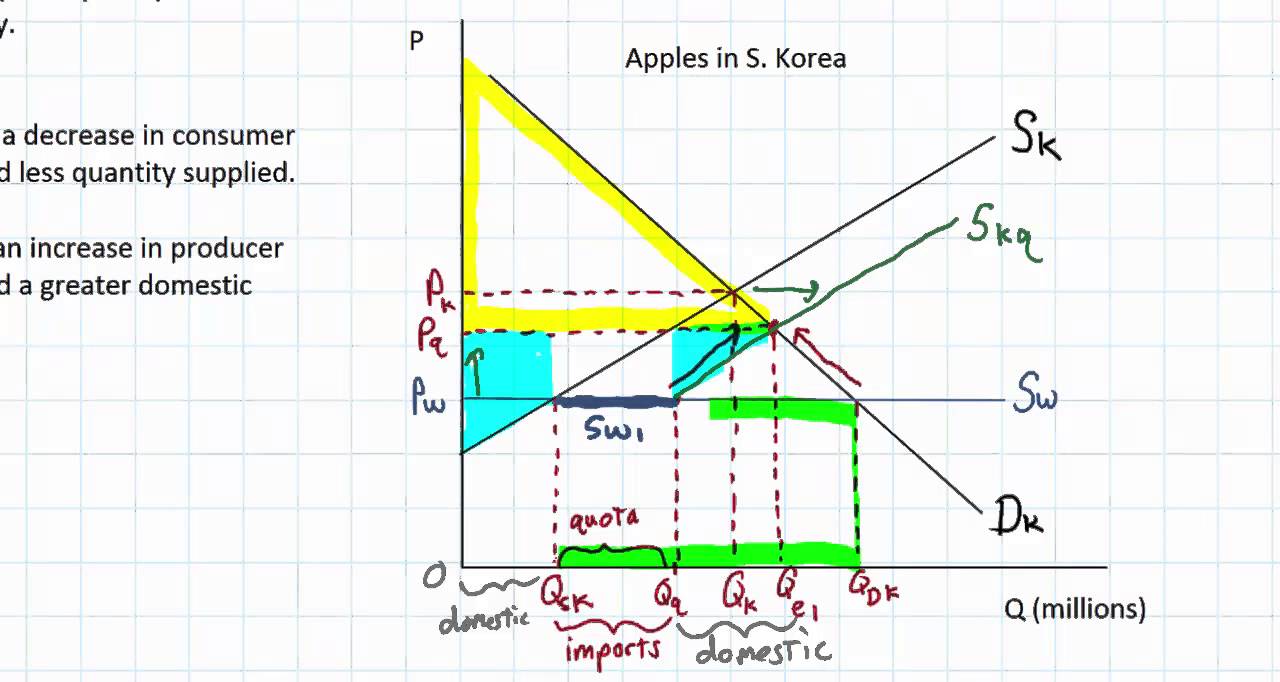 y.
a decrease in consumer
d less quantity supplied.
an increase in producer
d a greater domestic
P
Apples in S. Korea
SK
Skq
PK
Pq
Pw
Sw
Sw1
DK
quota
O
QSK
Qq
QK
Qe1
QDK
Q (millions)
domestic
imports
domestic